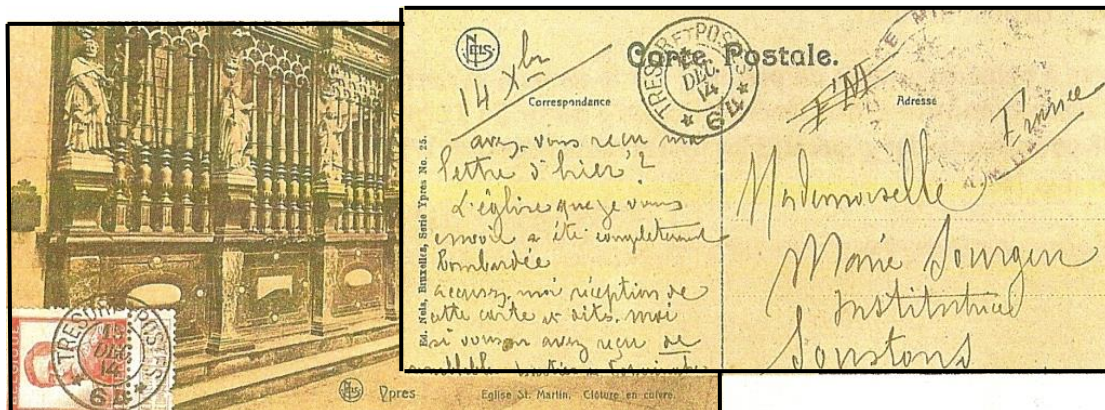 NELS
Carte Postale.
TRESOR ET POSTES
DEC
14
* 64 *
14 Xbre
Correspondance
Adresse
F.M
France
avez-vous reçu ma
lettre d'hier?
L'église que je vous
envoie a été complètement
bombardée
accusez moi réception de
cette carte et dites-moi
si vous en avez reçu de
Ed. Nels, Bruxelles, Serie Ypres No. 25.
Mademoiselle
Marie Sourgen
Institutrice
Soustons
BELGIQUE
TRESOR ET POSTES
15
DEC
14
* 64 *
NELS
Ypres
Eglise St. Martin. Clôture en cuivre.